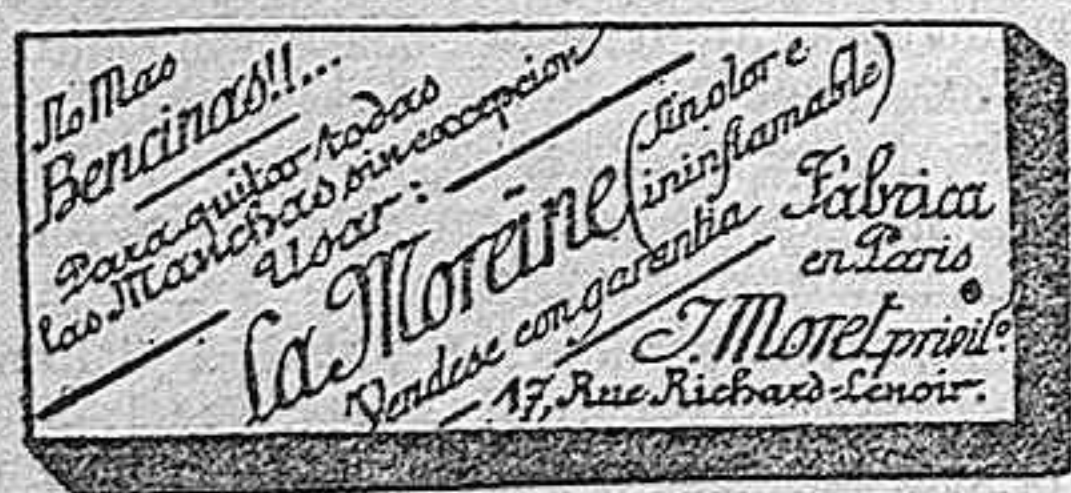 No Mas
Bencinas!!...
Para quitar todas
las Manchas sin excepcion
Usar:
La Moreine (sin olor e
ininflamable)
Vendese con garentia
Fabrica
en Paris
J. Moret privil.º
17, Rue Richard-Lenoir.